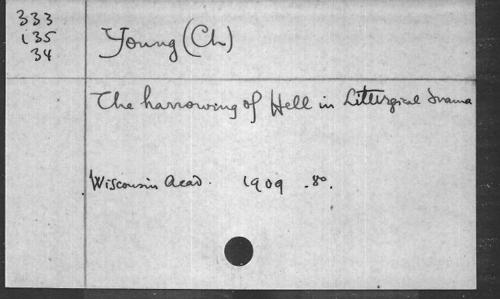 333
i35
34
Young (Ch)
The harrowing of Hell in Litturgical drama
Wisconsin Acad. 1909 . 8o.